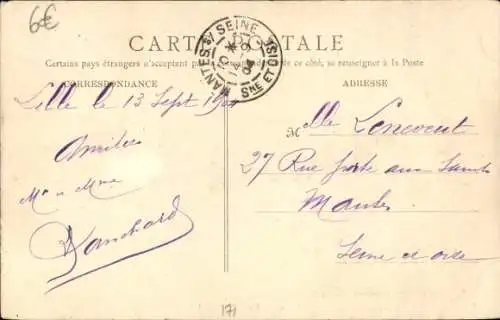 6€
MANTES S/ SEINE
Sne ET OISE
CARTE POSTALE
Certains pays étrangers n'acceptant pas de ce côté, se renseigner à la Poste
CORRESPONDANCE
ADRESSE
Lille le 13 Sept
Amitiés
Mr et Mme
Blanchard
M lle
27 Rue porte aux Saints
Mantes
Seine et oise
171